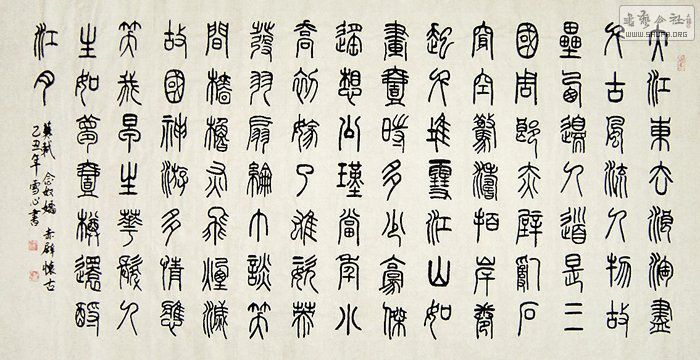 大江東去浪淘盡
千古風流人物故
壘西邊人道是三
國周郎赤壁亂石
穿空驚濤拍岸卷
起千堆雪江山如
畫壹時多少豪傑
遙想公瑾當年小
喬初嫁了雄姿英
發羽扇綸巾談笑
間檣櫓灰飛煙滅
故國神游多情應
笑我早生華髮人
生如夢壹樽還酹
江月
蘇軾 念奴嬌 赤壁懷古
己丑年雪心書
WWW.SHUFA.ORG